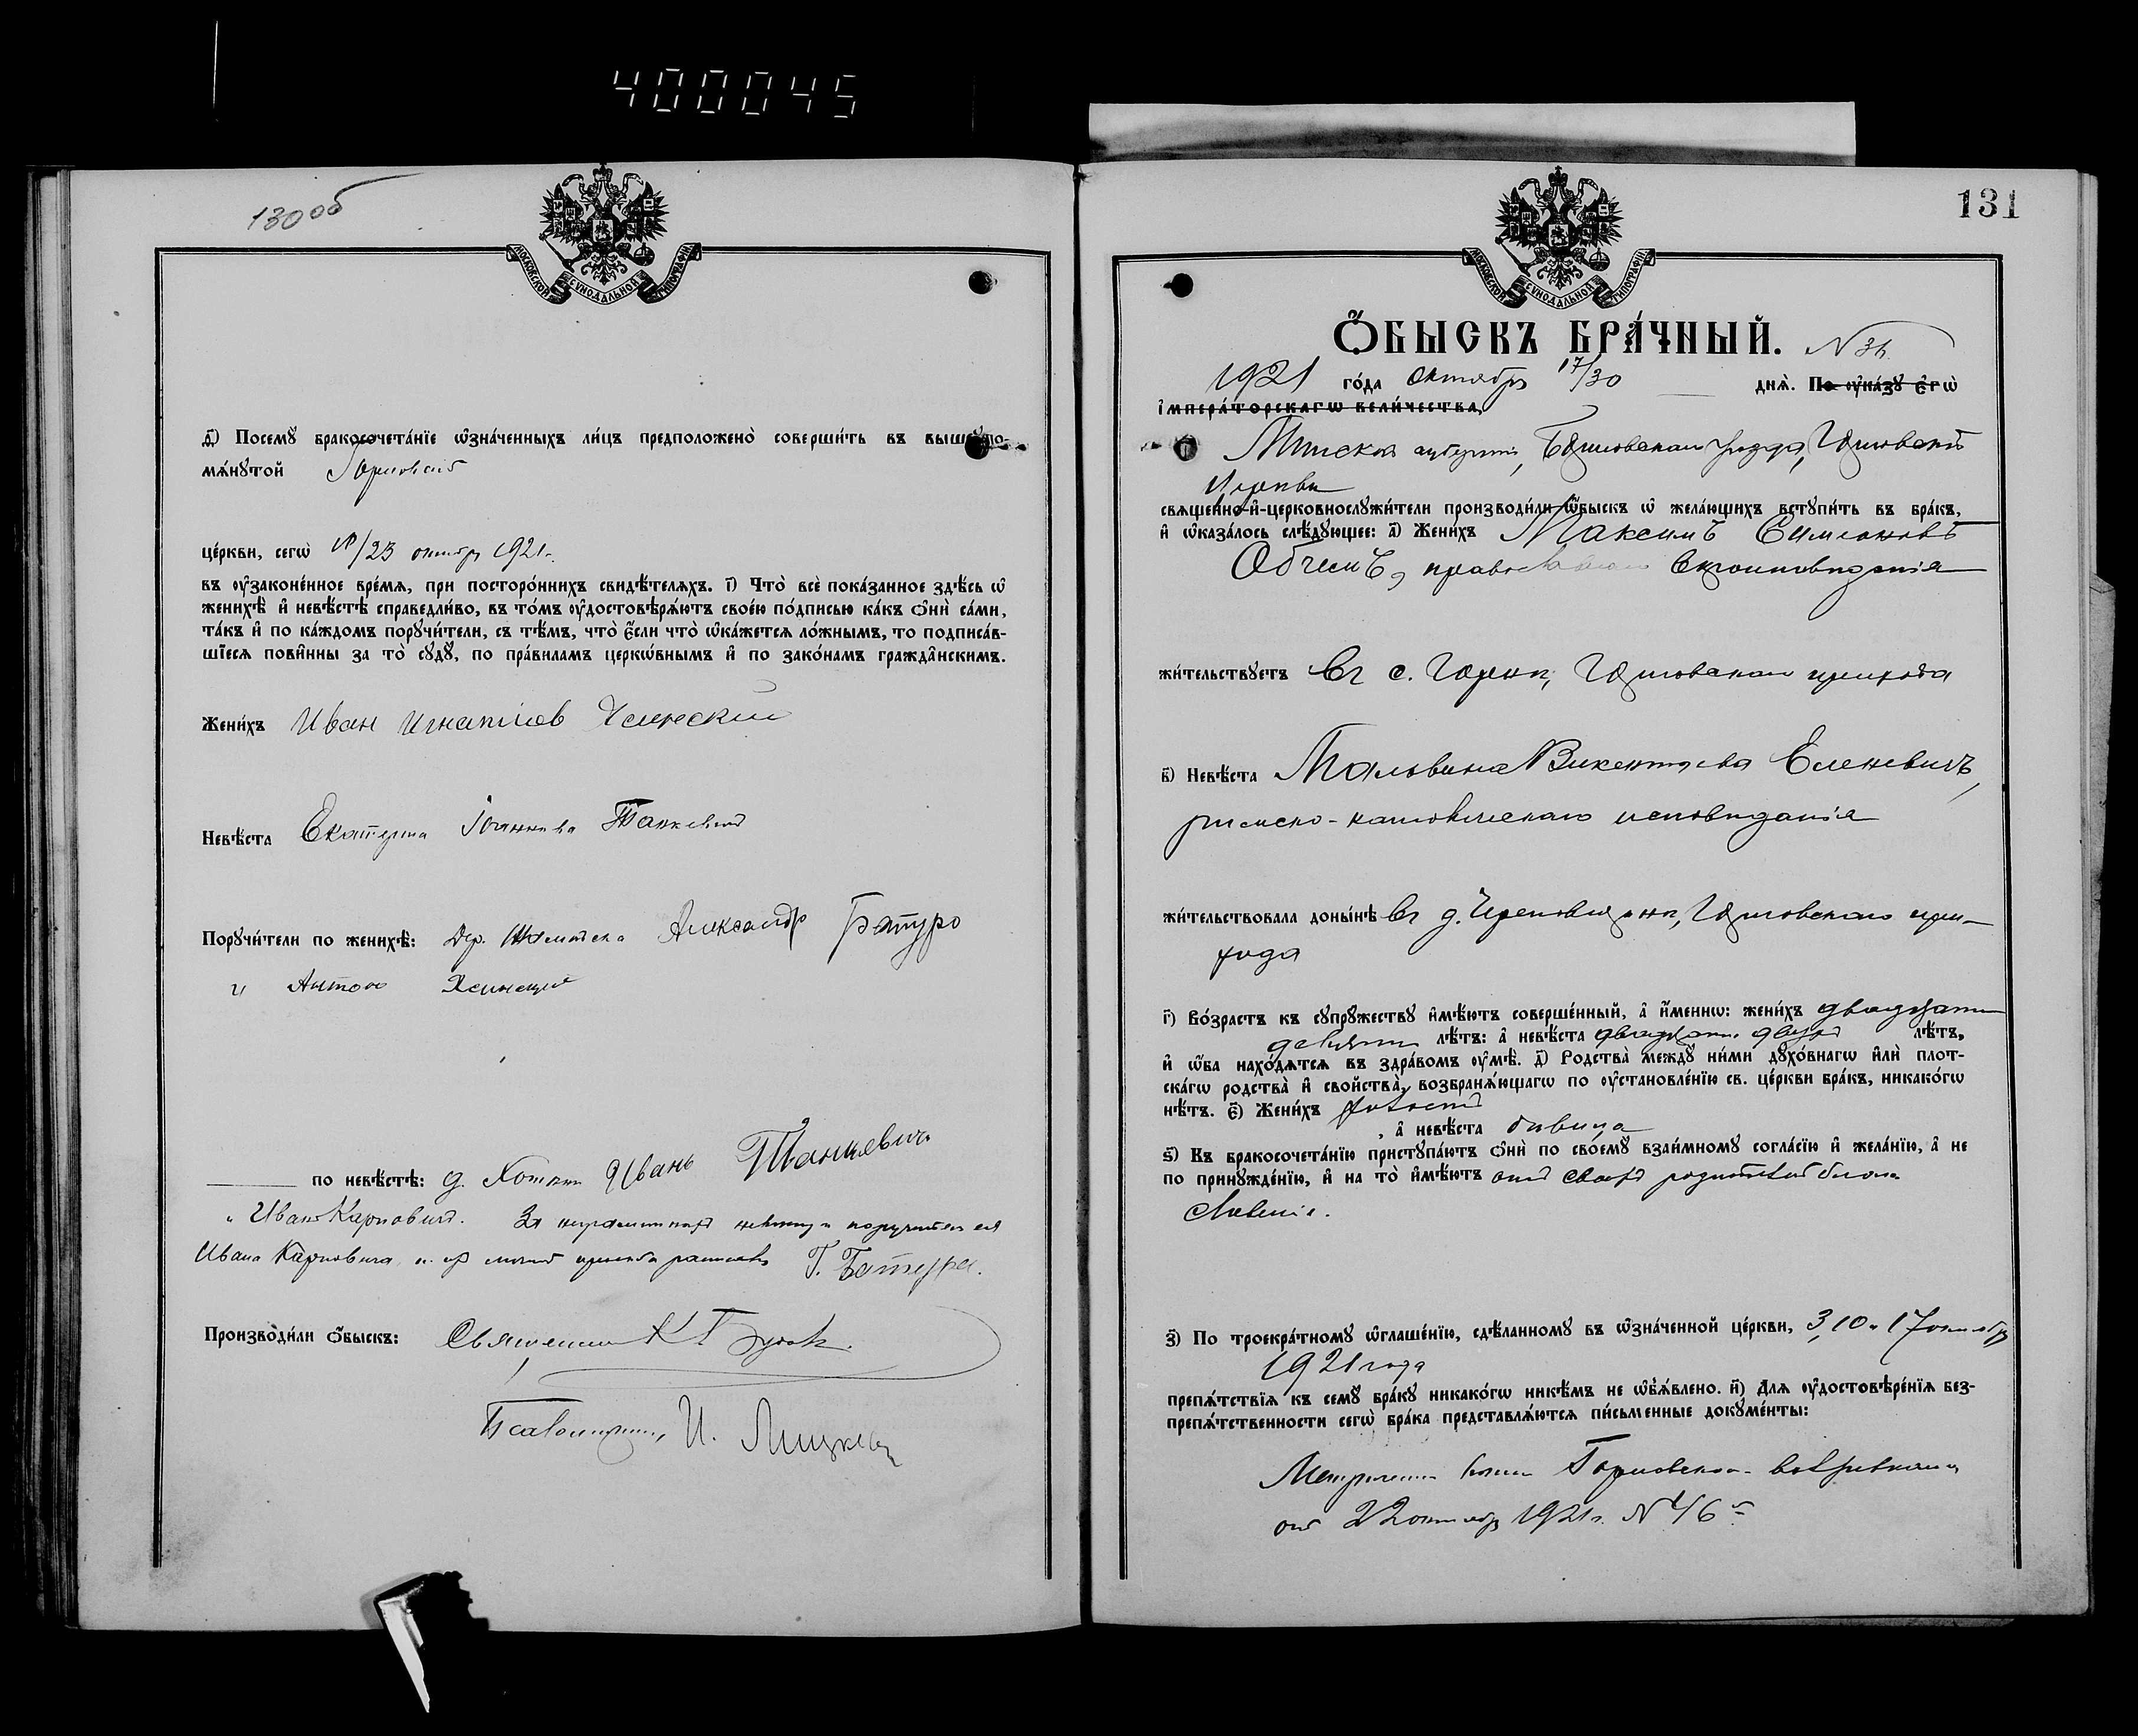 400045
130 об
МОСКОВСКОЙ СѴНОДАЛЬНОЙ ТИПОГРАФІИ
д҃і) Посемꙋ бракосочета́нїе ѡ҆зна́ченныхъ ли́цъ предположено̀ соверши́ть въ вышепо-
мѧ́нꙋтой Горновской
це́ркви, сегѡ̀ /23 октябр 1921 г.
въ ᲂу҆законе́нное вре́мѧ, при посторо́ннихъ свидѣ́телѧхъ. і҃) Что̀ всѐ пока́занное здѣ́сь ѡ҆
женихѣ̀ и҆ невѣ́стѣ справедли́во, въ то́мъ ᲂу҆достовѣрѧ́ютъ свое́ю по́дписью ка́къ ѻ҆нѝ са́ми,
та́къ и҆ по ка́ждомъ порꙋчи́тели, съ тѣ́мъ, что̀ є҆́сли что̀ ѡ҆ка́жетсѧ ло́жнымъ, то подписа́в-
шїесѧ пови́нны за то̀ сꙋдꙋ̀, по пра́виламъ церкѡ́внымъ и҆ по зако́намъ гражда́нскимъ.
Жени́хъ Иван Игнатіев Ясинский
Невѣ́ста Екатерина Іоаннова Танкевич
Порꙋчи́тели по женихѣ̀: Дер. Александр Батуро
и Антон Ясинский
по невѣ́стѣ: д. Иванъ Танкевич
" Иван Карпович. За неграмотных невесту и поручителя
Ивана Карповича, по их личной просьбе расписался Г. Батура.
Производи́ли ѻ҆́быскъ: Священник К
Псаломщик, И. Лицкевич
131
МОСКОВСКОЙ СѴНОДАЛЬНОЙ ТИПОГРАФІИ
Ѻ҆́БЫСКЪ БРА́ЧНЫЙ. N
1921 го́да октября 17/30 днѧ̀. По ᲂу҆ка́зꙋ є҆гѡ̀
і҆мпера́торскагѡ вели́чества,
Минской губерніи, уезда, Горновской
Церкви
свѧще́нно-и҆-церковнослꙋжи́тели производи́ли ѻ҆́быскъ ѡ҆ жела́ющихъ встꙋпи́ть въ бра́къ,
и҆ ѡ҆каза́лось слѣ́дꙋющее: а҃) Жени́хъ Максимъ Симеоновъ
православнаго вероисповеданія
жи́тельствꙋетъ въ с. Горки, Горновскаго прихода
в҃) Невѣ́ста Мальвина Викентіева Еленевичъ,
римско-католическаго исповеданія
жи́тельствовала доны́нѣ въ д. Горновскаго при-
хода
г҃) Во́зрастъ къ сꙋпрꙋ́жествꙋ и҆мѣ́ютъ соверше́нный, а҆ и҆́меннѡ: жени́хъ двадцати
девяти лѣ́тъ: а҆ невѣ́ста двадцати двухъ лѣ́тъ,
и҆ ѻ҆́ба нахо́дѧтсѧ въ здра́вомъ ᲂу҆мѣ̀. д҃) Родства̀ междꙋ̀ ни́ми дꙋхо́внагѡ и҆лѝ плот-
ска́гѡ родства̀ и҆ свойства̀, возбранѧ́ющагѡ по ᲂу҆становле́нїю св. це́ркви бра́къ, никако́гѡ
нѣ́тъ. є҃) Жени́хъ холост
, а҆ невѣ́ста девица
ѕ҃) Къ бракосочета́нїю пристꙋпа́ютъ ѻ҆нѝ по своемꙋ̀ взаи́мномꙋ согла́сїю и҆ жела́нїю, а҆ не
по принꙋжде́нїю, и҆ на то̀ и҆мѣ́ютъ от своих родителей благо-
словеніе.
з҃) По троекра́тномꙋ ѡ҆глаше́нїю, сдѣ́ланномꙋ въ ѡ҆зна́ченной це́ркви, 3, 10 и 17 октября
1921 года
препѧ́тствїѧ къ семꙋ̀ бра́кꙋ никако́гѡ никѣ́мъ не ѡ҆б̾ѧ́влено. и҃) Длѧ ᲂу҆достовѣре́нїѧ без-
препѧ́тственности сегѡ̀ бра́ка представлѧ́ютсѧ пи́сьменные докꙋме́нты:
Горновскаго
от 22 октября 1921 г. N 46